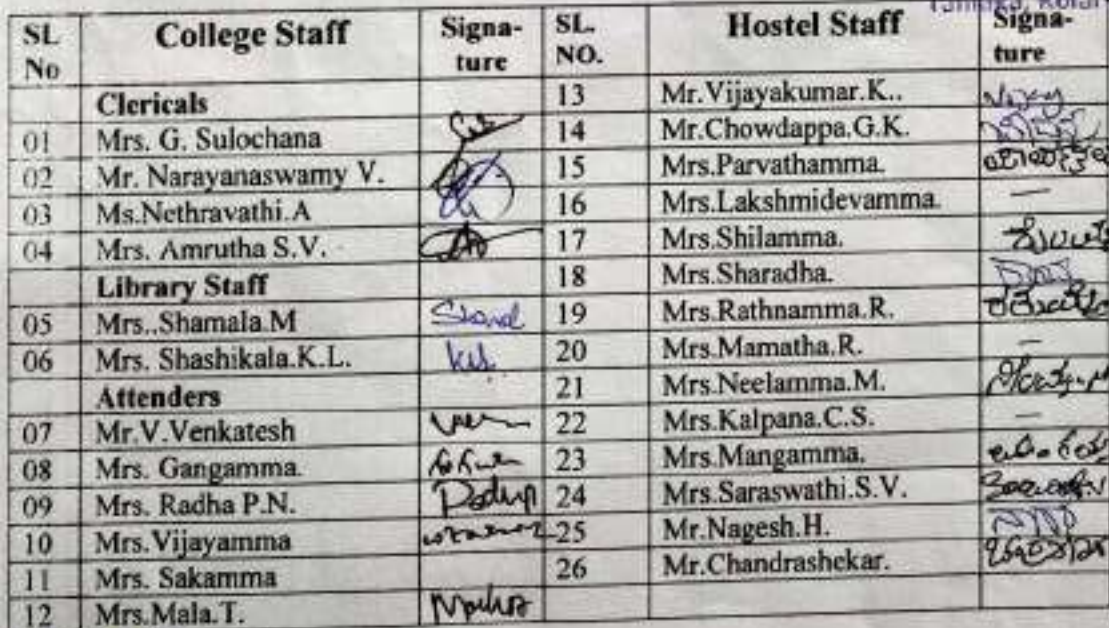 Tamaka, Kolar
SL No College Staff Signa-ture SL. NO. Hostel Staff Signa-ture
Clericals 13 Mr.Vijayakumar.K.. Vijay
01 Mrs. G. Sulochana 14 Mr.Chowdappa.G.K.
02 Mr. Narayanaswamy V. 15 Mrs.Parvathamma.
03 Ms.Nethravathi.A 16 Mrs.Lakshmidevamma. —
04 Mrs. Amrutha S.V. 17 Mrs.Shilamma.
Library Staff 18 Mrs.Sharadha.
05 Mrs..Shamala.M 19 Mrs.Rathnamma.R.
06 Mrs. Shashikala.K.L. 20 Mrs.Mamatha.R. —
Attenders 21 Mrs.Neelamma.M.
07 Mr.V.Venkatesh 22 Mrs.Kalpana.C.S. —
08 Mrs. Gangamma. 23 Mrs.Mangamma.
09 Mrs. Radha P.N. 24 Mrs.Saraswathi.S.V.
10 Mrs.Vijayamma 25 Mr.Nagesh.H.
11 Mrs. Sakamma 26 Mr.Chandrashekar.
12 Mrs.Mala.T.